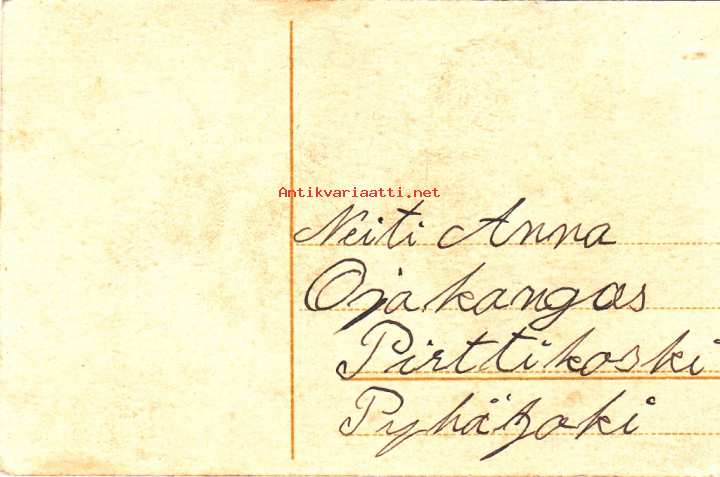 Antikvariaatti.net
Neiti Anna
Ojakangas
Pirttikoski
Pyhäjoki